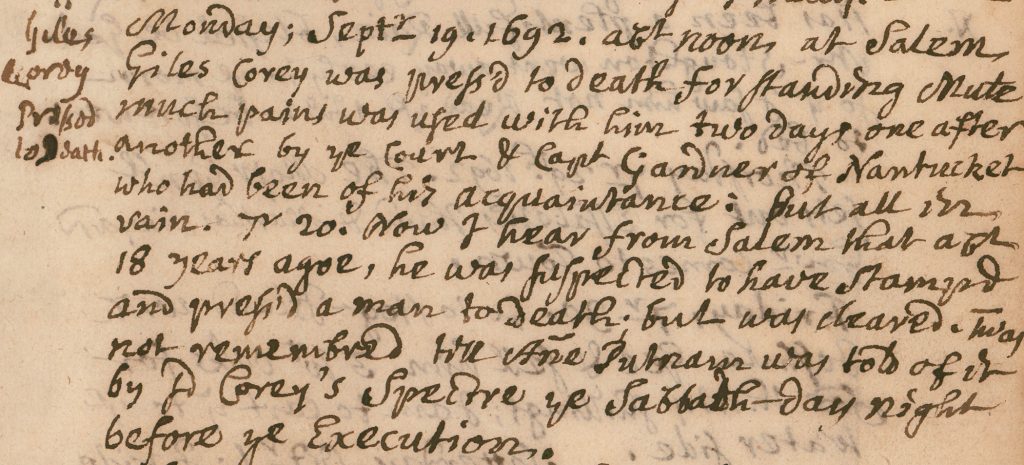 Giles
Corey
Pressed
to Death.
Monday; Septr 19. 1692. abt noon, at Salem,
Giles Corey was press'd to death for standing Mute
much pains was used with him two days, one after
another by ye Court & Capt Gardner of Nantucket
who had been of his acquaintance: but all in
vain. 7r 20. Now I hear from Salem that abt
18 years agoe, he was suspected to have Stamp'd
and press'd a man to death; but was cleared. Twas
not remembred till Añe Putnam was told of it
by sd Corey's Spectre ye Sabbath-day night
before ye Execution.